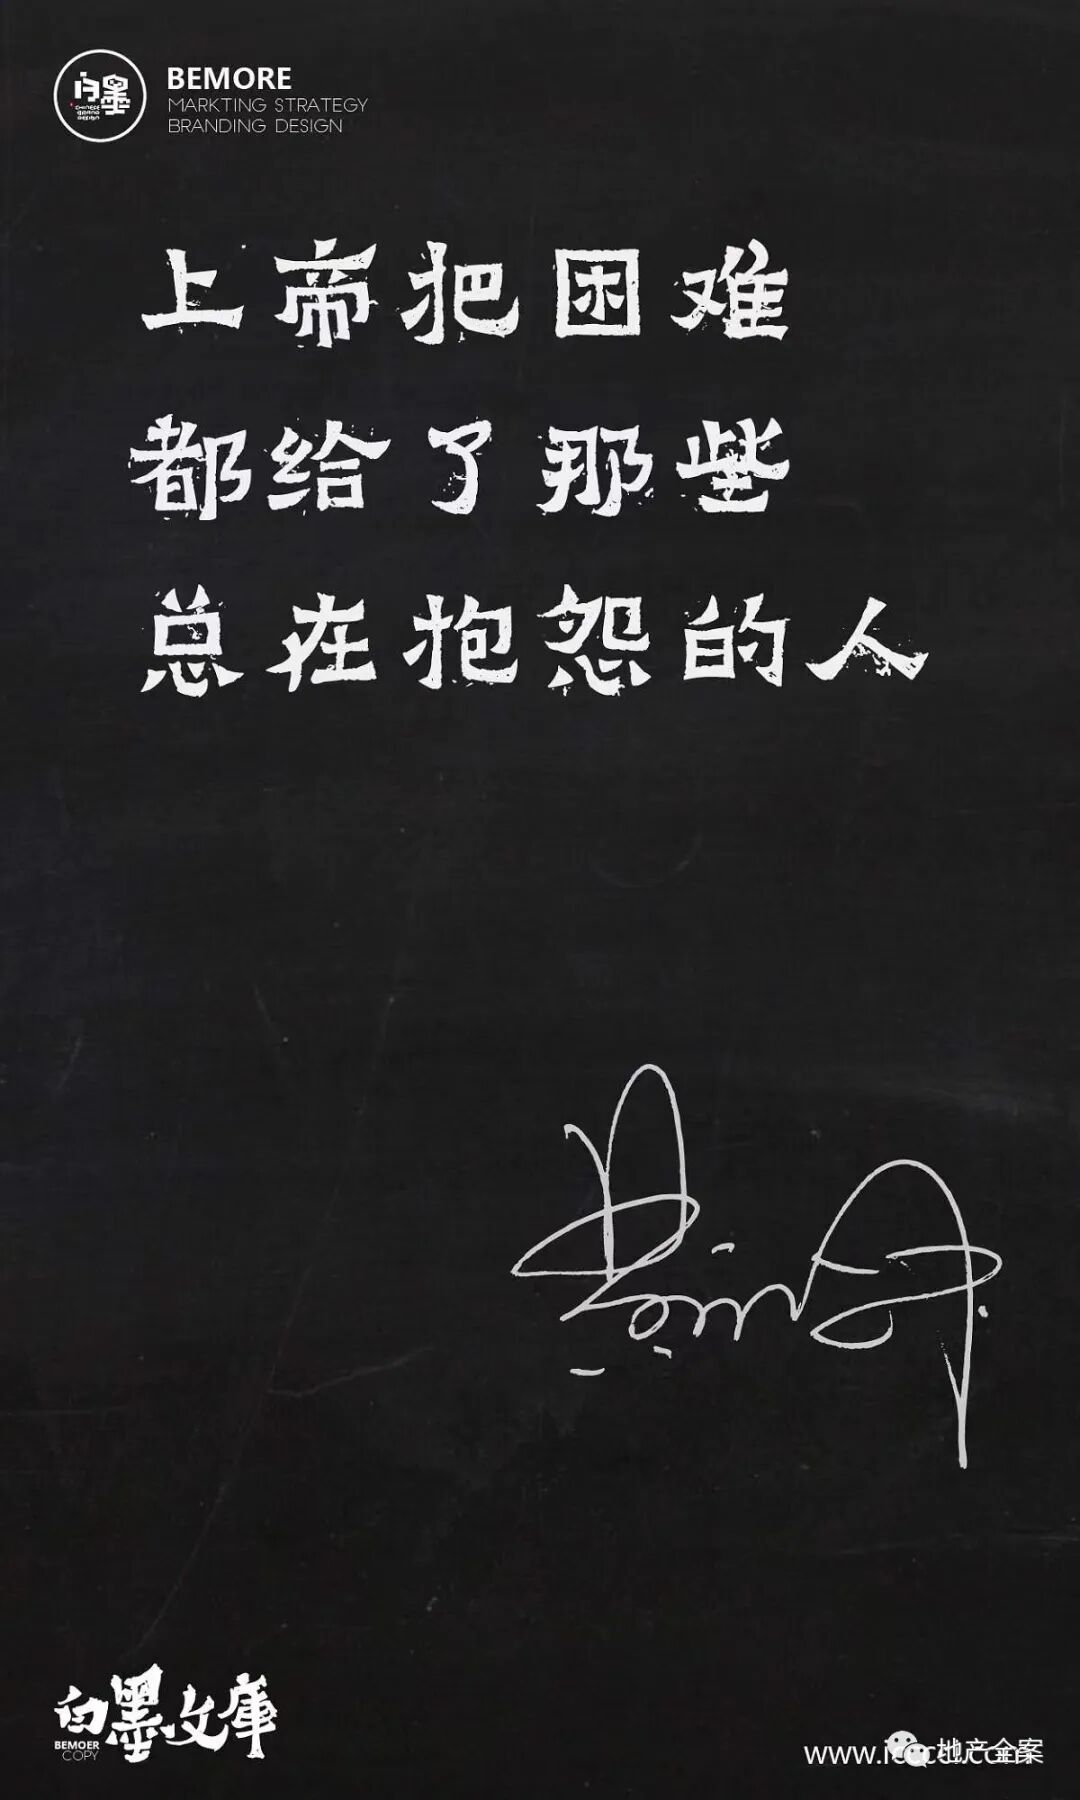 白墨
CHINESE
BRAND
DESIGN
BEMORE
MARKTING STRATEGY
BRANDING DESIGN
上帝把困难
都给了那些
总在抱怨的人
白墨文庫
BEMOER
COPY
地产全案